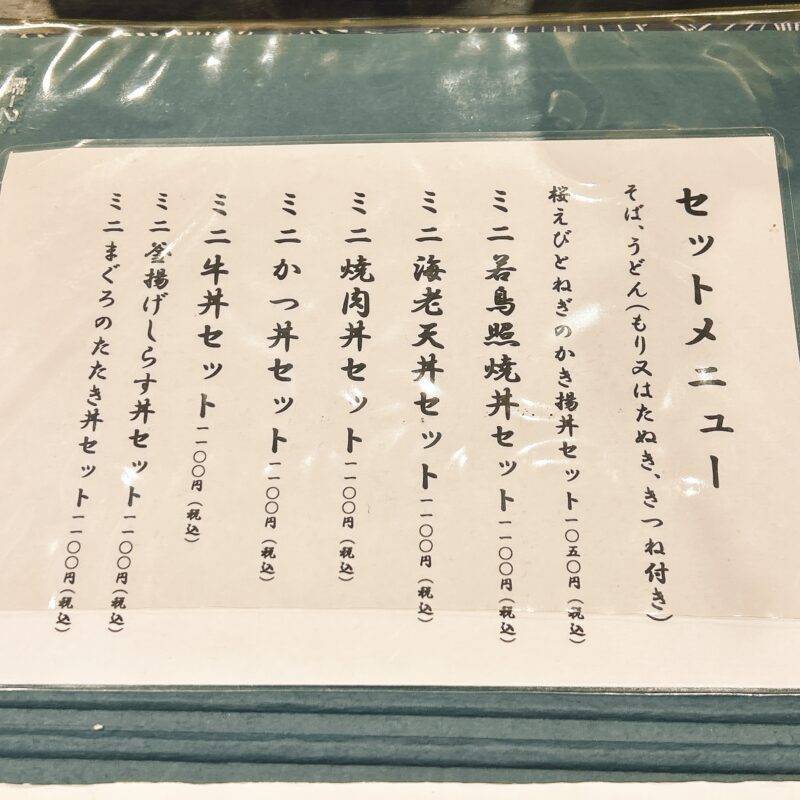 セットメニュー
そば、うどん(もり又はたぬき、きつね付き)
桜えびとねぎのかき揚丼セット一〇五〇円(税込)
ミニ若鳥照焼丼セット一一〇〇円(税込)
ミニ海老天丼セット一一〇〇円(税込)
ミニ焼肉丼セット一一〇〇円(税込)
ミニかつ丼セット一一〇〇円(税込)
ミニ牛丼セット一一〇〇円(税込)
ミニ釜揚げしらす丼セット一一〇〇円(税込)
ミニまぐろのたたき丼セット一一〇〇円(税込)